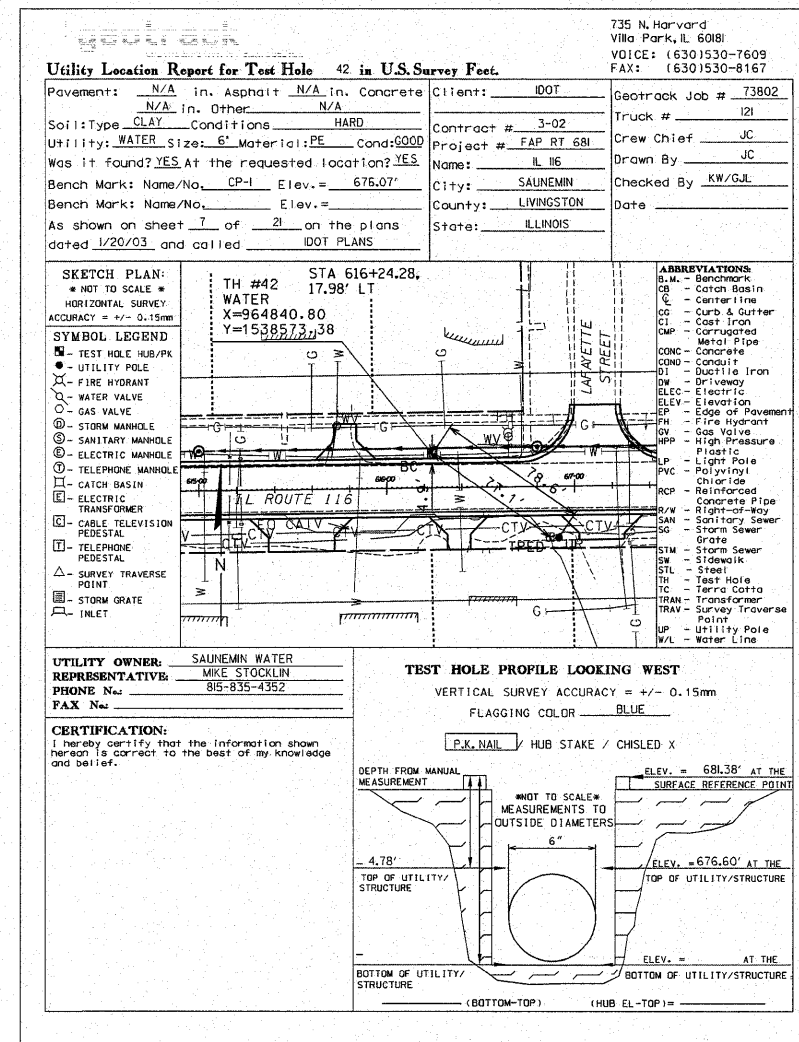 geotrack
735 N. Harvard
Villa Park, IL 60181
VOICE: (630)530-7609
FAX: (630)530-8167
Utility Location Report for Test Hole 42 in U.S. Survey Feet.
Pavement: N/A in. Asphalt N/A in. Concrete
N/A in. Other N/A
Soil: Type CLAY Conditions HARD
Utility: WATER Size: 6" Material: PE Cond: GOOD
Was it found? YES At the requested location? YES
Bench Mark: Name/No. CP-1 Elev.= 676.07'
Bench Mark: Name/No. Elev.=
As shown on sheet 7 of 21 on the plans
dated 1/20/03 and called IDOT PLANS
Client: IDOT
Contract # 3-02
Project # FAP RT 681
Name: IL 116
City: SAUNEMIN
County: LIVINGSTON
State: ILLINOIS
Geotrack Job # 73802
Truck # 121
Crew Chief JC
Drawn By JC
Checked By KW/GJL
Date
SKETCH PLAN:
* NOT TO SCALE *
HORIZONTAL SURVEY
ACCURACY = +/- 0.15mm
SYMBOL LEGEND
- TEST HOLE HUB/PK
- UTILITY POLE
- FIRE HYDRANT
- WATER VALVE
- GAS VALVE
D - STORM MANHOLE
S - SANITARY MANHOLE
E - ELECTRIC MANHOLE
T - TELEPHONE MANHOLE
- CATCH BASIN
E - ELECTRIC
TRANSFORMER
C - CABLE TELEVISION
PEDESTAL
T - TELEPHONE
PEDESTAL
- SURVEY TRAVERSE
POINT
- STORM GRATE
- INLET
TH #42
WATER
X=964840.80
Y=1538573.38
STA 616+24.28,
17.98' LT
LAFAYETTE
STREET
G
W
G
W
G
WV
G
WV
G
W
W
W
BC
615+00
616+00
617+00
IL ROUTE 116
77.1'
78.6'
CTV
CTV
CTV
CTV
CTV
CTV
TPED
UP
N
W
G
W
G
G
ABBREVIATIONS:
B.M. - Benchmark
CB - Catch Basin
℄ - Centerline
CG - Curb & Gutter
CI - Cast Iron
CMP - Corrugated
Metal Pipe
CONC - Concrete
COND - Conduit
DI - Ductile Iron
DW - Driveway
ELEC - Electric
ELEV - Elevation
EP - Edge of Pavement
FH - Fire Hydrant
GV - Gas Valve
HPP - High Pressure
Plastic
LP - Light Pole
PVC - Polyvinyl
Chloride
RCP - Reinforced
Concrete Pipe
R/W - Right-of-Way
SAN - Sanitary Sewer
SG - Storm Sewer
Grate
STM - Storm Sewer
SW - Sidewalk
STL - Steel
TH - Test Hole
TC - Terra Cotta
TRAN - Transformer
TRAV - Survey Traverse
Point
UP - Utility Pole
W/L - Water Line
UTILITY OWNER: SAUNEMIN WATER
REPRESENTATIVE: MIKE STOCKLIN
PHONE No.: 815-835-4352
FAX No.:
CERTIFICATION:
I hereby certify that the information shown
hereon is correct to the best of my knowledge
and belief.
TEST HOLE PROFILE LOOKING WEST
VERTICAL SURVEY ACCURACY = +/- 0.15mm
FLAGGING COLOR BLUE
P.K. NAIL / HUB STAKE / CHISLED X
DEPTH FROM MANUAL
MEASUREMENT
ELEV. = 681.38' AT THE
SURFACE REFERENCE POINT
*NOT TO SCALE*
MEASUREMENTS TO
OUTSIDE DIAMETERS
6"
4.78'
TOP OF UTILITY/
STRUCTURE
ELEV. = 676.60' AT THE
TOP OF UTILITY/STRUCTURE
ELEV. = AT THE
BOTTOM OF UTILITY/
STRUCTURE
BOTTOM OF UTILITY/STRUCTURE
(BOTTOM-TOP)
(HUB EL-TOP)=